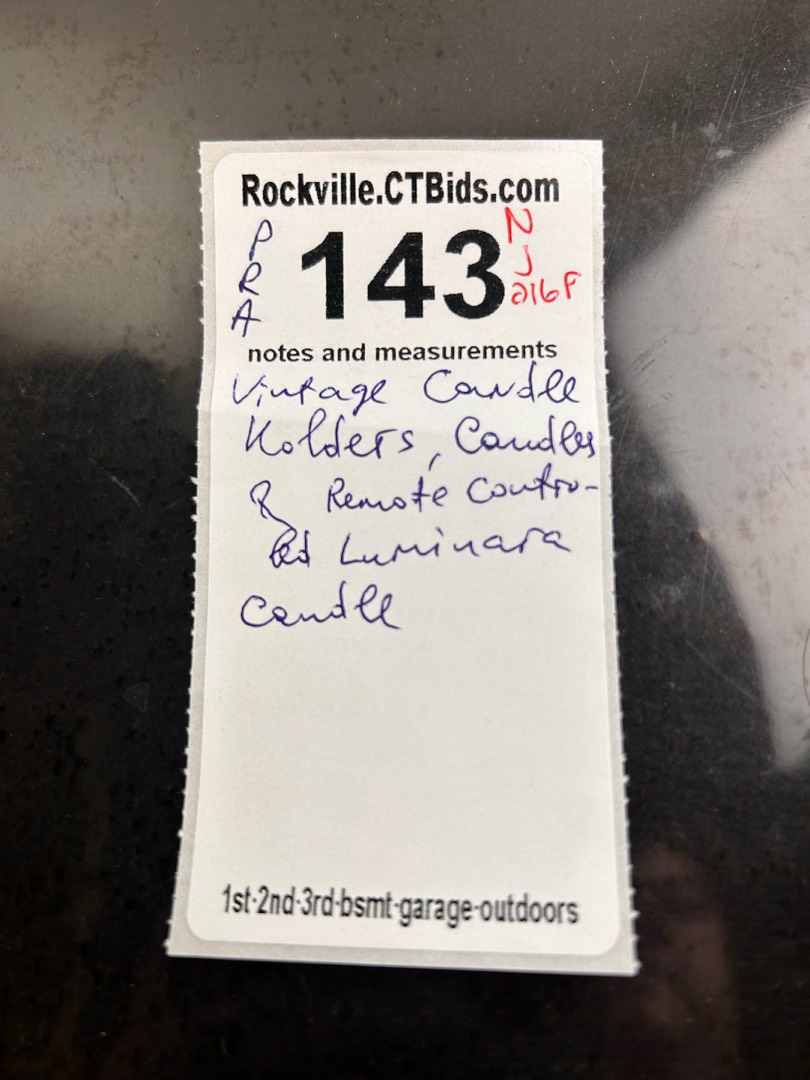 Rockville.CTBids.com
P
R
A
143
N
J
216F
notes and measurements
Vintage Candle
Holders, Candles
& Remote Contro-
led Luminara
Candle
1st-2nd-3rd-bsmt-garage-outdoors